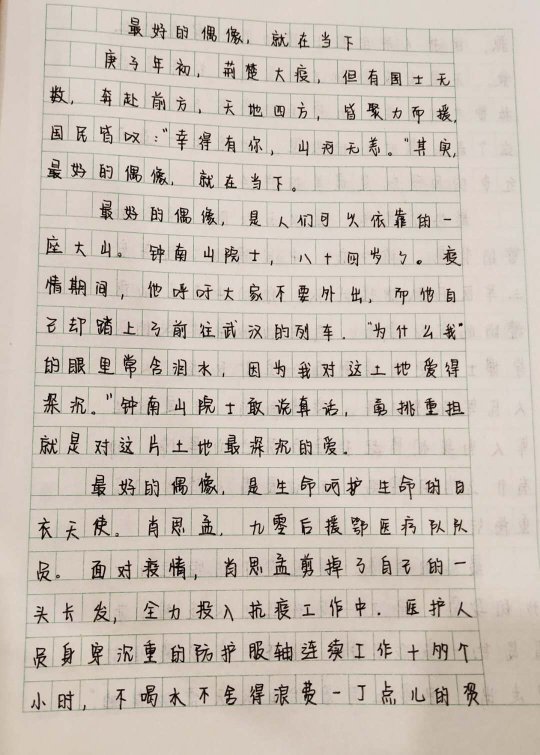 最好的偶像，就在当下
庚子年初，荆楚大疫，但有国士无
数，奔赴前方，天地四方，皆聚力而援，
国民皆叹：“幸得有你，山河无恙。”其实，
最好的偶像，就在当下。
最好的偶像，是人们可以依靠的一
座大山。钟南山院士，八十四岁了。疫
情期间，他呼吁大家不要外出，而他自
己却踏上了前往武汉的列车．“为什么我
的眼里常含泪水，因为我对这土地爱得
深沉。”钟南山院士敢说真话，勇挑重担
就是对这片土地最深沉的爱。
最好的偶像，是生命呵护生命的白
衣天使。肖思孟，九零后援鄂医疗队队
员。面对疫情，肖思孟剪掉了自己的一
头长发，全力投入抗疫工作中．医护人
员身穿沉重的防护服轴连续工作十两个
小时，不喝水不舍得浪费一丁点儿的资